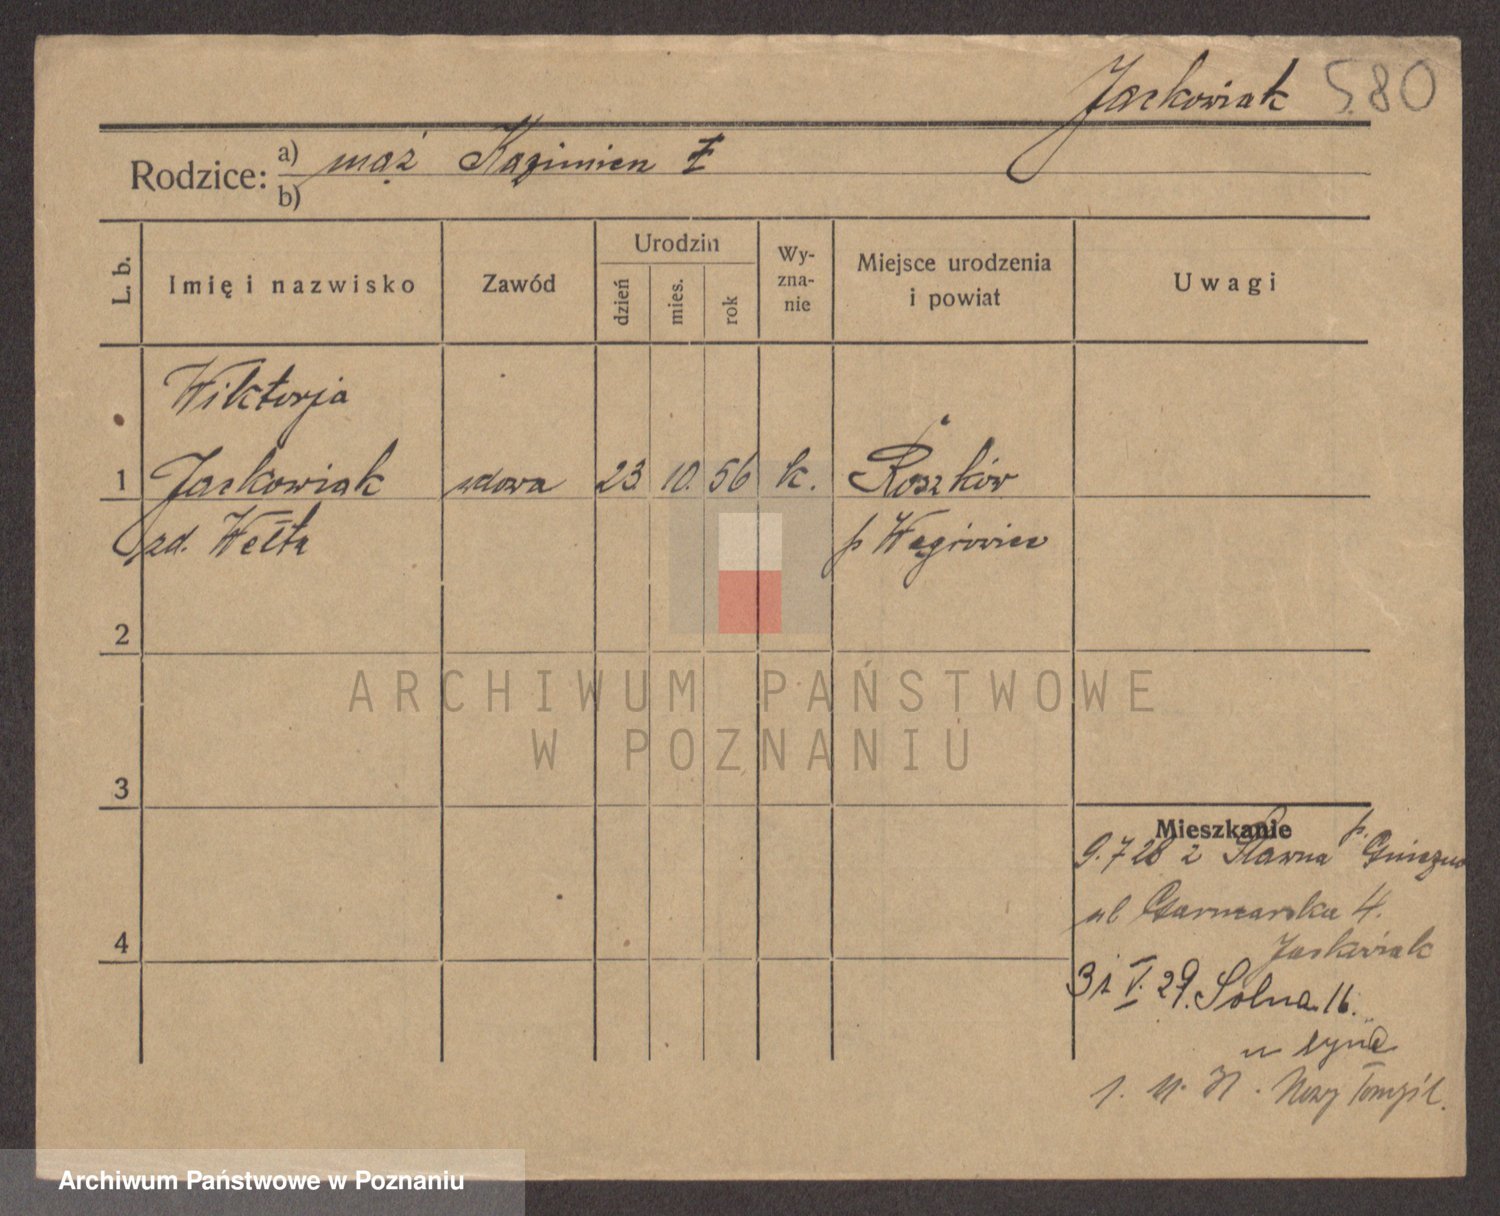 Jackowiak 580
Rodzice: a) mąż Kazimierz
b)
L. b.
Imię i nazwisko
Zawód
Urodzin
dzień
mies.
rok
Wy-
zna-
nie
Miejsce urodzenia
i powiat
Uwagi
Wiktorja
1 Jackowiak wdowa 23 10. 56 k. Roszków
zd. Wełta p Wągrowiec
2
3
4
Mieszkanie
9. 7 28 z Sławna p. Gniezno
ul Garncarska 4.
Jackowiak
31 V. 29. Solna 16.
u syna
1. Nowy Tomyśl.
ARCHIWUM PAŃSTWOWE
W POZNANIU
Archiwum Państwowe w Poznaniu